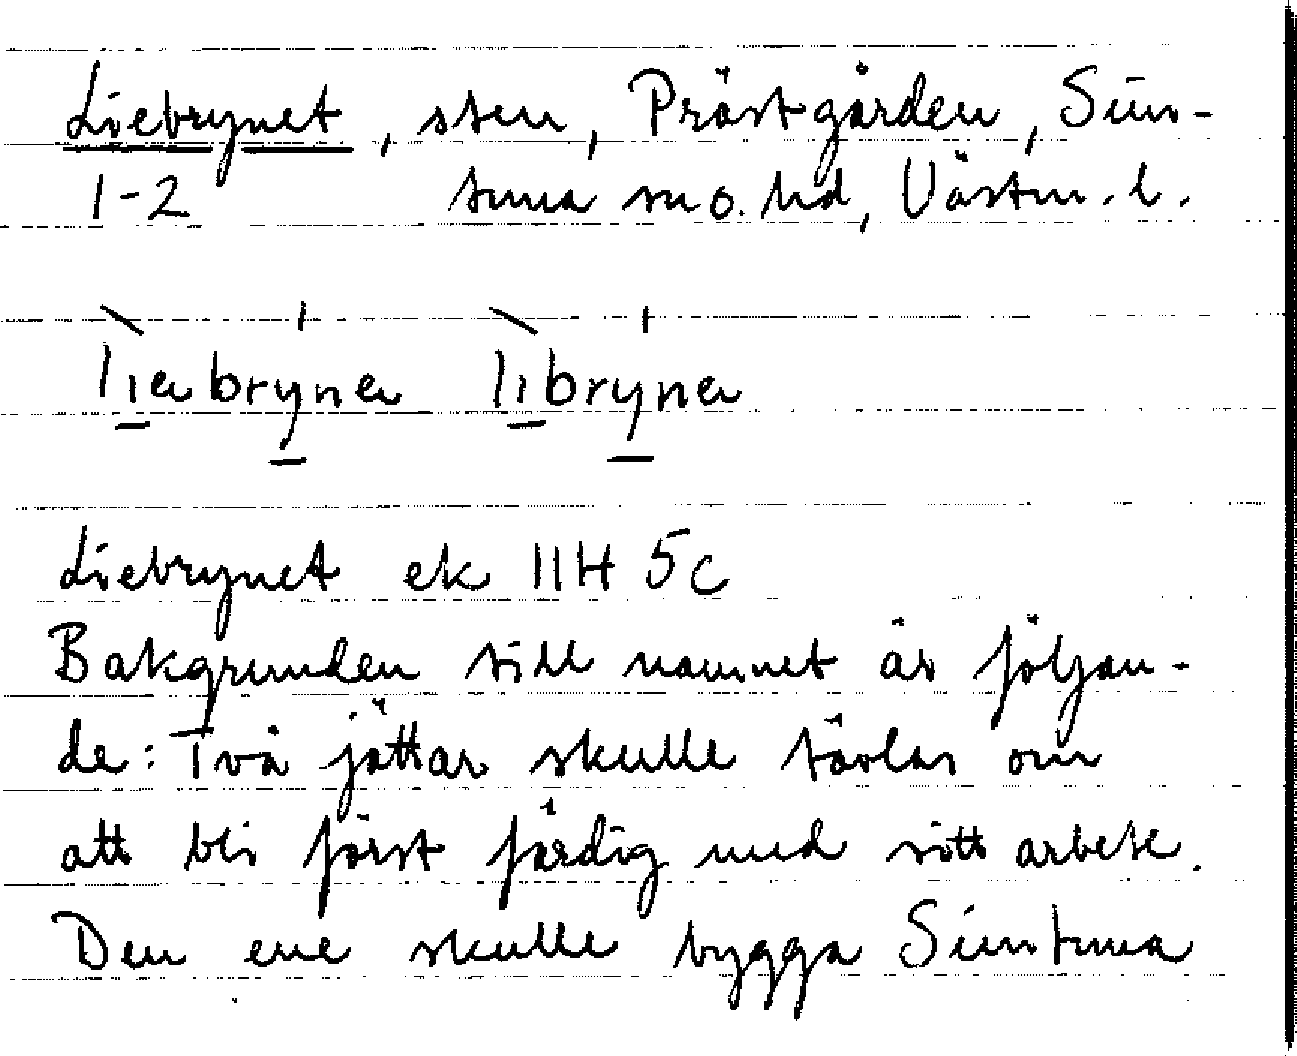 Liebrynet, sten, Prästgården, Sim-
1-2 tuna sn o. hd, Västm. l.
Liebrynet ek 11H 5c
Bakgrunden till namnet är följan-
de: Två jättar skulle tävlar om
att bli först färdig med sitt arbete.
Den ene skulle bygga Simtuna